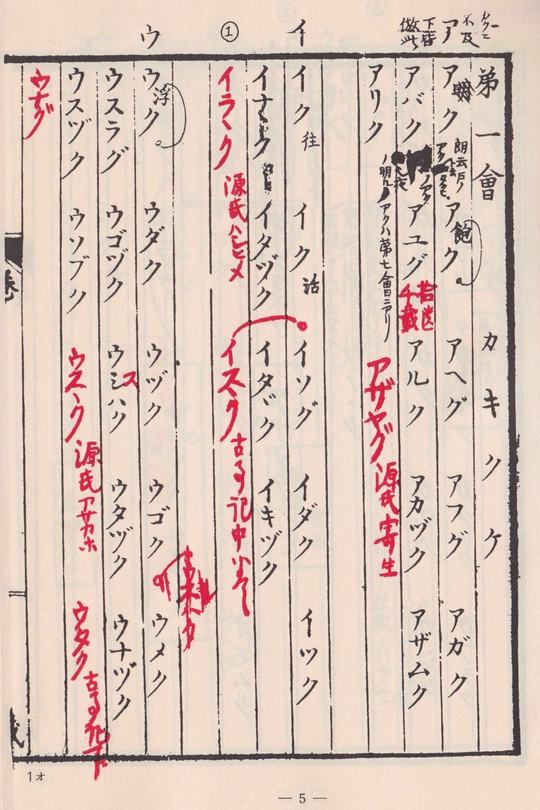 弟一會 カ キ ク ケ
ア
下皆
倣此
アク 明 アク 飽 アヘグ アフグ アガク
アバク アユグ アルク アカヅク アザムク
拾遺
千載
アクハ第七會ニアリ
アリク アザヤグ 源氏寄生
イ
イク 往 イク 活 イソグ イダク イツク
イナヽク イタヅク イタヾク イキヅク
①
イラヽク 源氏ハシヒメ イスヽク 古事記中
ウ
ウク 浮 ウダク ウヅク ウゴク ウメク
ウスラグ ウゴヅク ウシハク ス ウタヅク ウナヅク
ウスヅク ウソブク ウスヽク 源氏アサカホ ウタク 古事記下
ウナグ
1オ
— 5 —